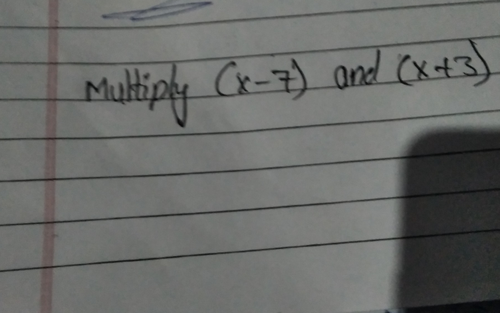 Multiply (x-7) and (x+3)